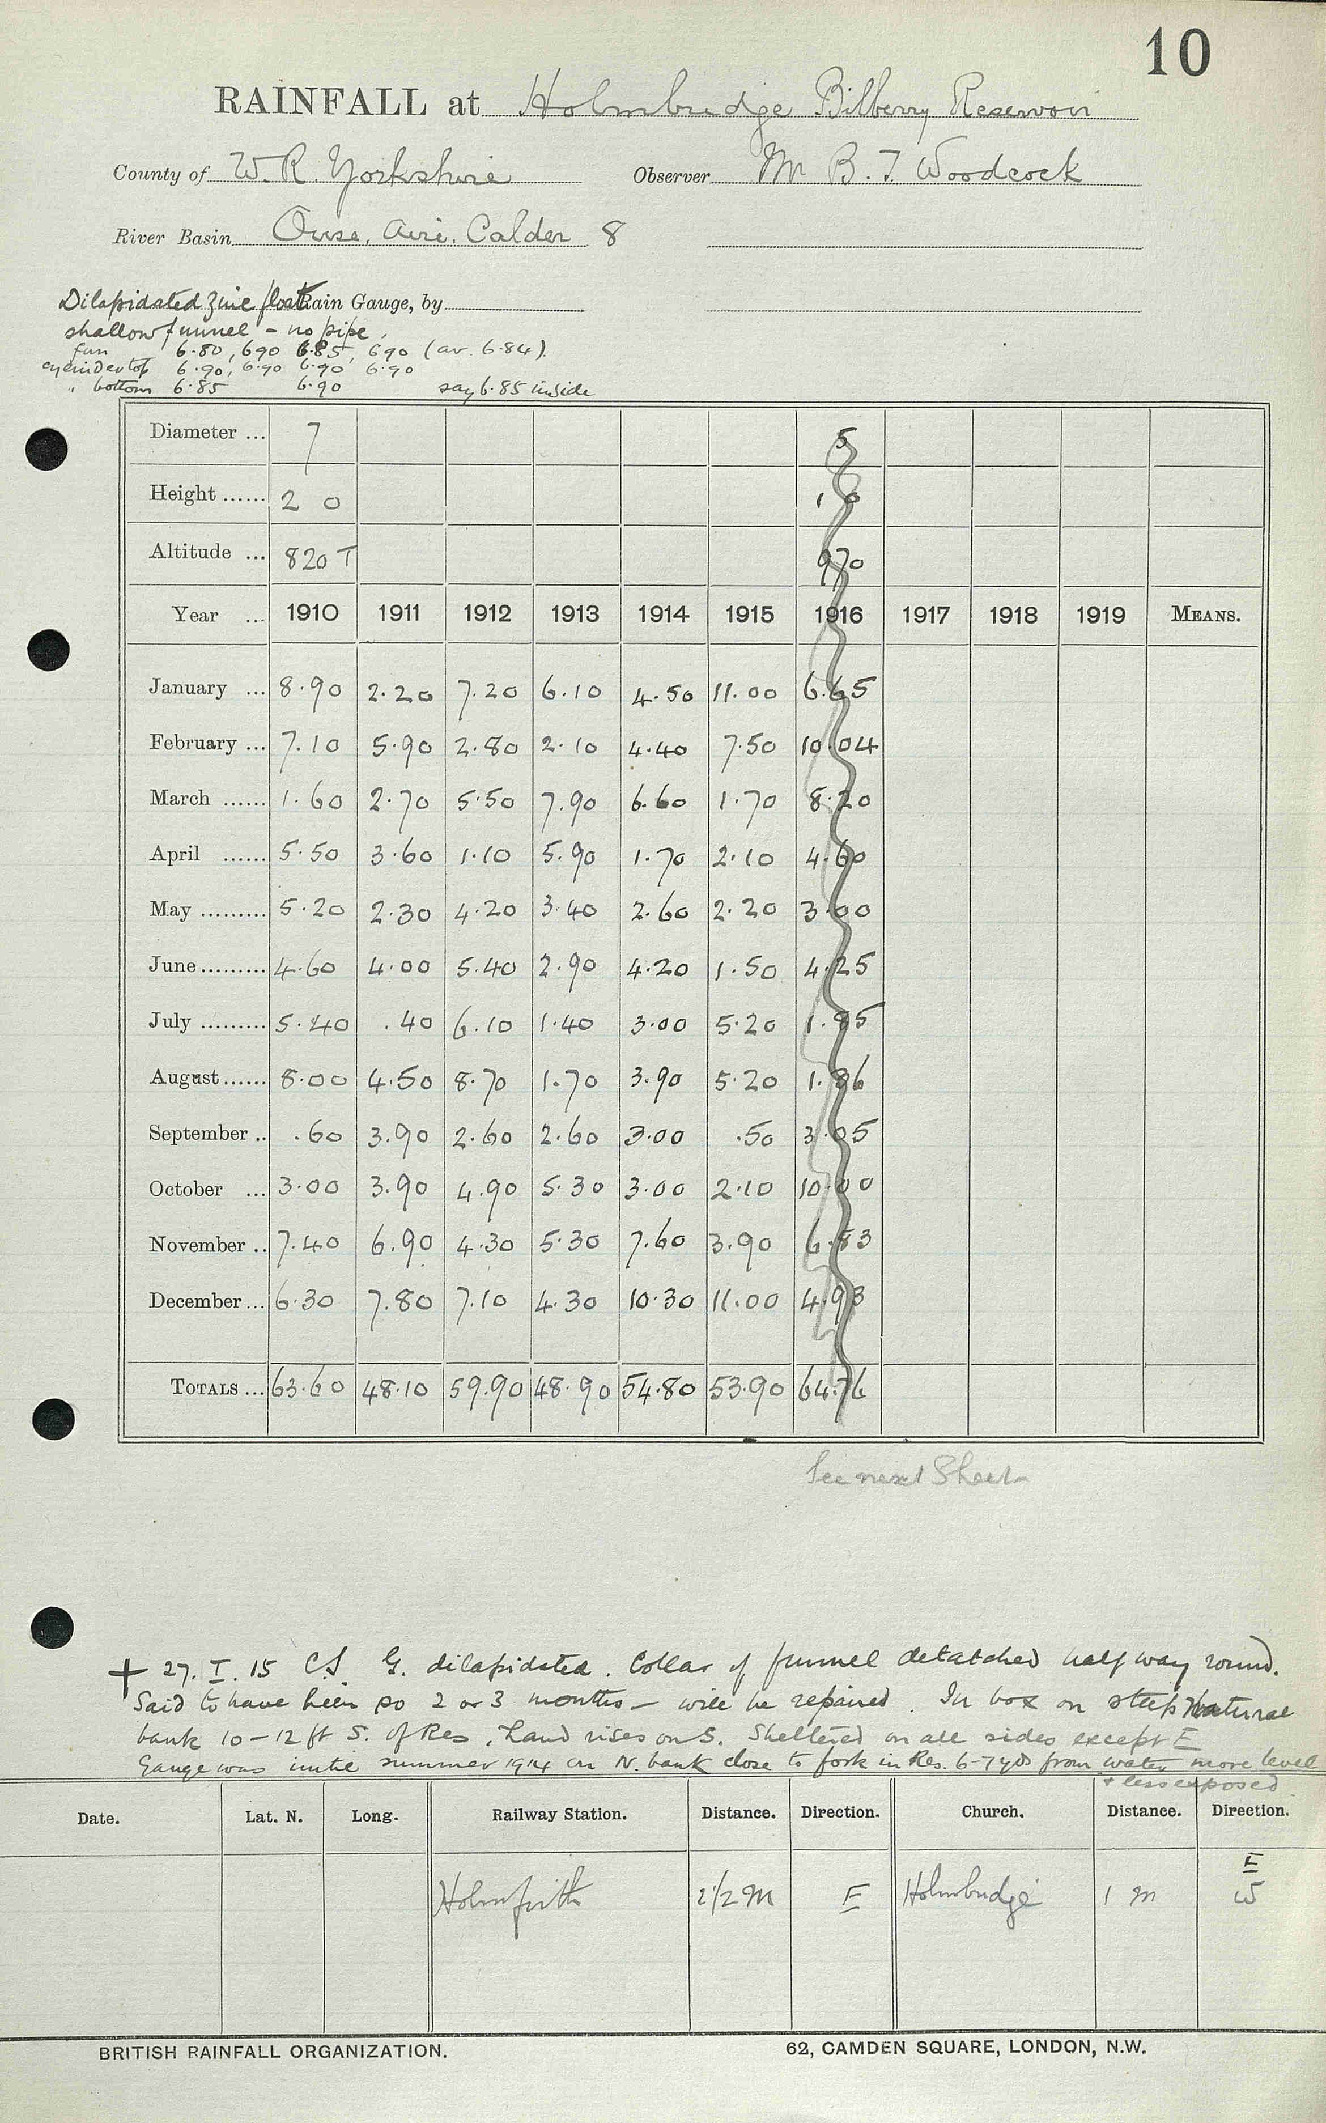 10
RAINFALL at Holmbridge Bilberry Reservoir
County of W. R. Yorkshire Observer Mr B. T. Woodcock
River Basin Ouse, Aire, Calder 8
Dilapidated zinc float Rain Gauge, by
shallow funnel - no pipe.
fun 6.80, 690 6.85, 690 (av. 6.84).
cylinder top 6.90, 6.90 6.90 6.90
" bottom 6.85 6.90 say 6.85 inside
Diameter ... 7 5
Height ...... 2 0 1 0
Altitude ... 820 T 970
Year ... 1910 1911 1912 1913 1914 1915 1916 1917 1918 1919 MEANS.
January ... 8.90 2.20 7.20 6.10 4.50 11.00 6.65
February ... 7.10 5.90 2.80 2.10 4.40 7.50 10.04
March ...... 1.60 2.70 5.50 7.90 6.60 1.70 8.20
April ...... 5.50 3.60 1.10 5.90 1.70 2.10 4.60
May ......... 5.20 2.30 4.20 3.40 2.60 2.20 3.00
June ......... 4.60 4.00 5.40 2.90 4.20 1.50 4.25
July ......... 5.40 .40 6.10 1.40 3.00 5.20 1.85
August ...... 8.00 4.50 8.70 1.70 3.90 5.20 1.36
September .. .60 3.90 2.60 2.60 3.00 .50 3.05
October ... 3.00 3.90 4.90 5.30 3.00 2.10 10.00
November .. 7.40 6.90 4.30 5.30 7.60 3.90 6.83
December ... 6.30 7.80 7.10 4.30 10.30 11.00 4.93
TOTALS ... 63.60 48.10 59.90 48.90 54.80 53.90 64.76
See next Sheet
+ 27. I. 15 CS G. dilapidated. Collar of funnel detatched half way round.
Said to have been so 2 or 3 months - will be repaired. In box on steep natural
bank 10-12 ft S. of Res. Land rises on S. Sheltered on all sides except E
Gauge was until summer 1914 on N. bank close to fork in Res. 6-7 yds from water more level
+ less exposed
Date. Lat. N. Long. Railway Station. Distance. Direction. Church. Distance. Direction.
E
Holmfirth 2 1/2 m E Holmbridge 1 m W
BRITISH RAINFALL ORGANIZATION. 62, CAMDEN SQUARE, LONDON, N.W.